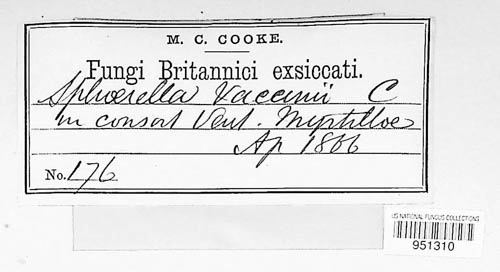 M. C. COOKE.
Fungi Britannici exsiccati.
Sphærella Vaccinii C
in consort Vent. Myrtilloe
Ap 1866
No. 176
US NATIONAL FUNGUS COLLECTIONS
951310